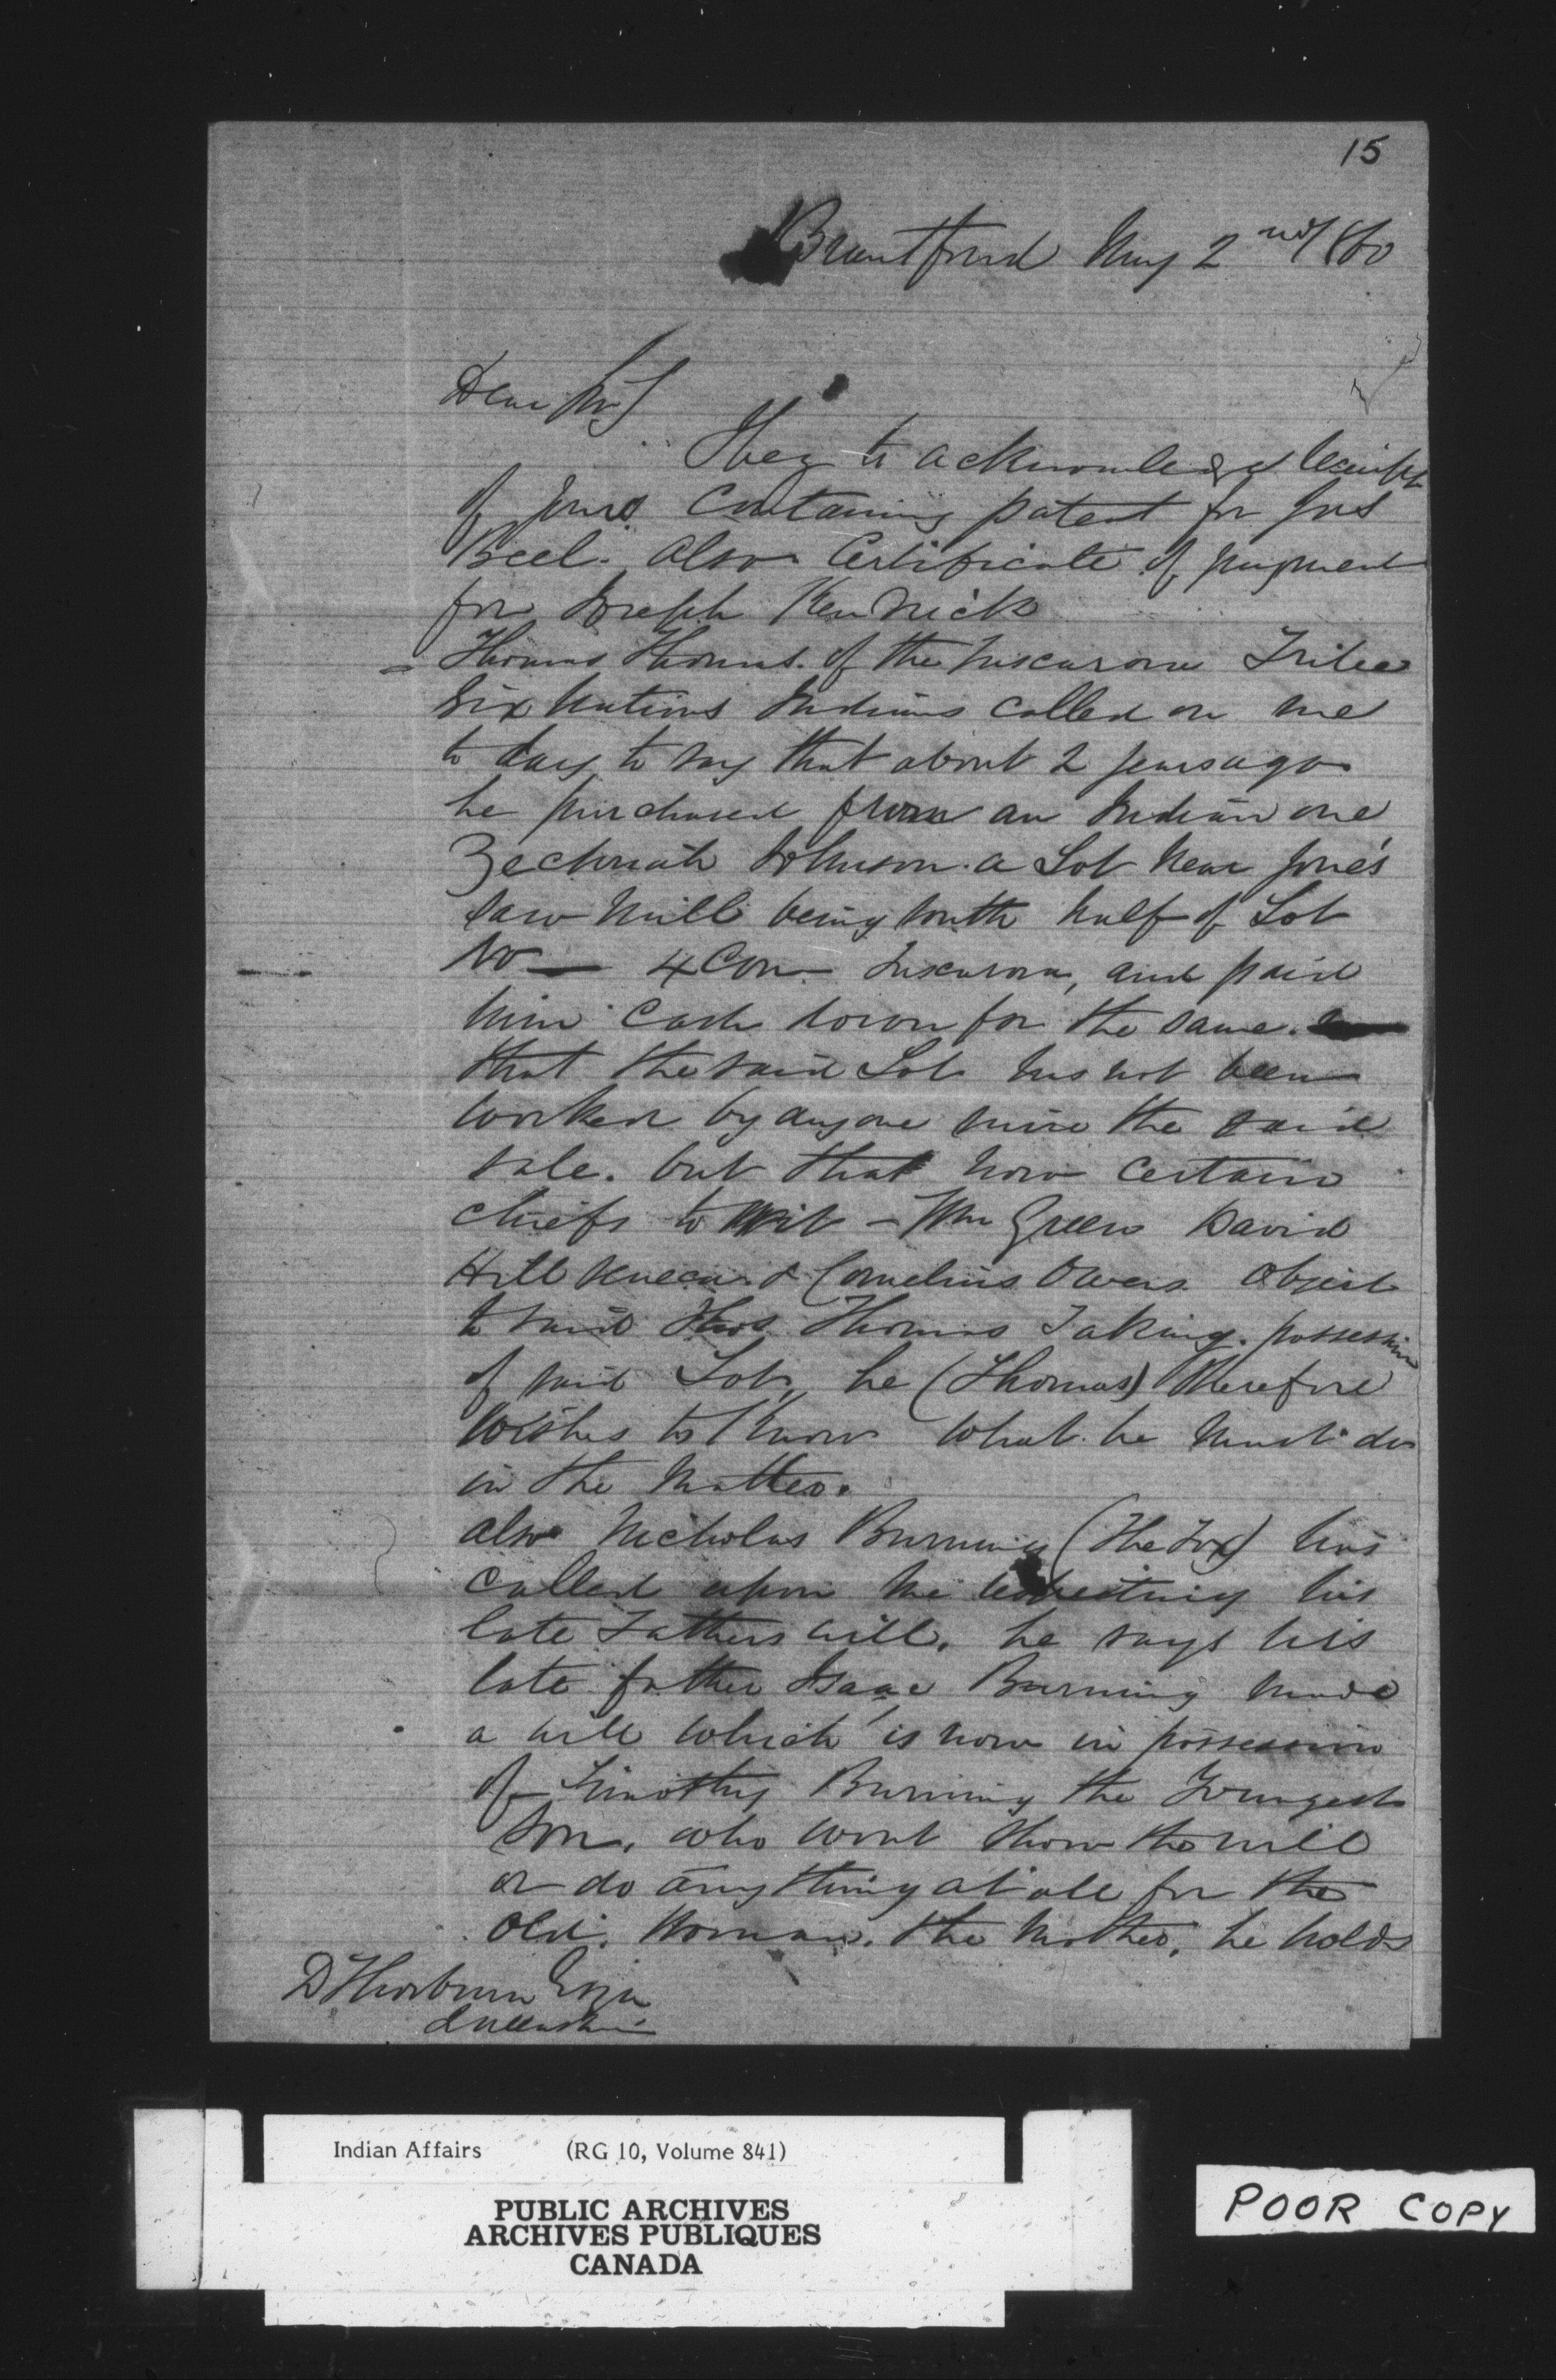 15
Brantford May 2nd/60
Dear Sir
I beg to acknowledge receipt
of yours containing patent for Jas
Beel. also Certificate of payment
for Joseph Kenrick
Thomas Thomas. of the Tuscarora Tribe
Six Nations Indians called on me
to day to say that about 2 years ago
he purchased from an Indian one
Zechriah Johnson. a Lot near Jone's
Saw Mill being South half of Lot
No — 4 Con. Tuscarora, and paid
him cash down for the same.
that the said Lot has not been
worked by anyone since the said
sale. but that now certain
chiefs to wit - Wm Green David
Hill & Cornelius Owens. object
to said Thos Thomas Taking. possession
of said Lot, he (Thomas) therefore
wishes to know what he must do
in the matter.
also Nicholas Burning (The Fox) has
called upon me his
late Fathers will. he says his
late father Isaac Burning made
a will which is now in possession
of Timothy Burning the Youngest
Son. who wont show the will
or do any thing at all for the
old. woman. the mother, he holds
D Thorburn Esqr
Queenston
Indian Affairs (RG 10, Volume 841)
PUBLIC ARCHIVES
ARCHIVES PUBLIQUES
CANADA
POOR COPY